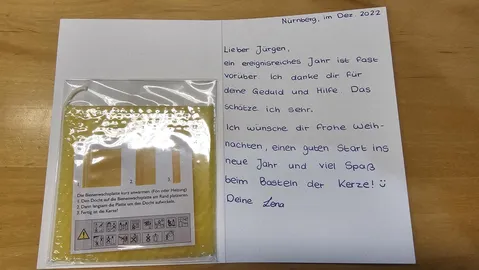 Nürnberg, im Dez 2022
Lieber Jürgen,
ein ereignisreiches Jahr ist fast
vorüber. Ich danke dir für
deine Geduld und Hilfe Das
schätze ich sehr.
Ich wünsche dir frohe Weih-
nachten, einen guten Start ins
neue Jahr und viel Spaß
beim Basteln der Kerze!
Deine Lena
1. 2. 3.
Die Bienenwachsplatte kurz anwärmen (Fön oder Heizung)
1. Den Docht auf die Bienenwachsplatte am Rand platzieren.
2. Dann langsam die Platte um den Docht aufwickeln.
3. Fertig ist die Kerze!